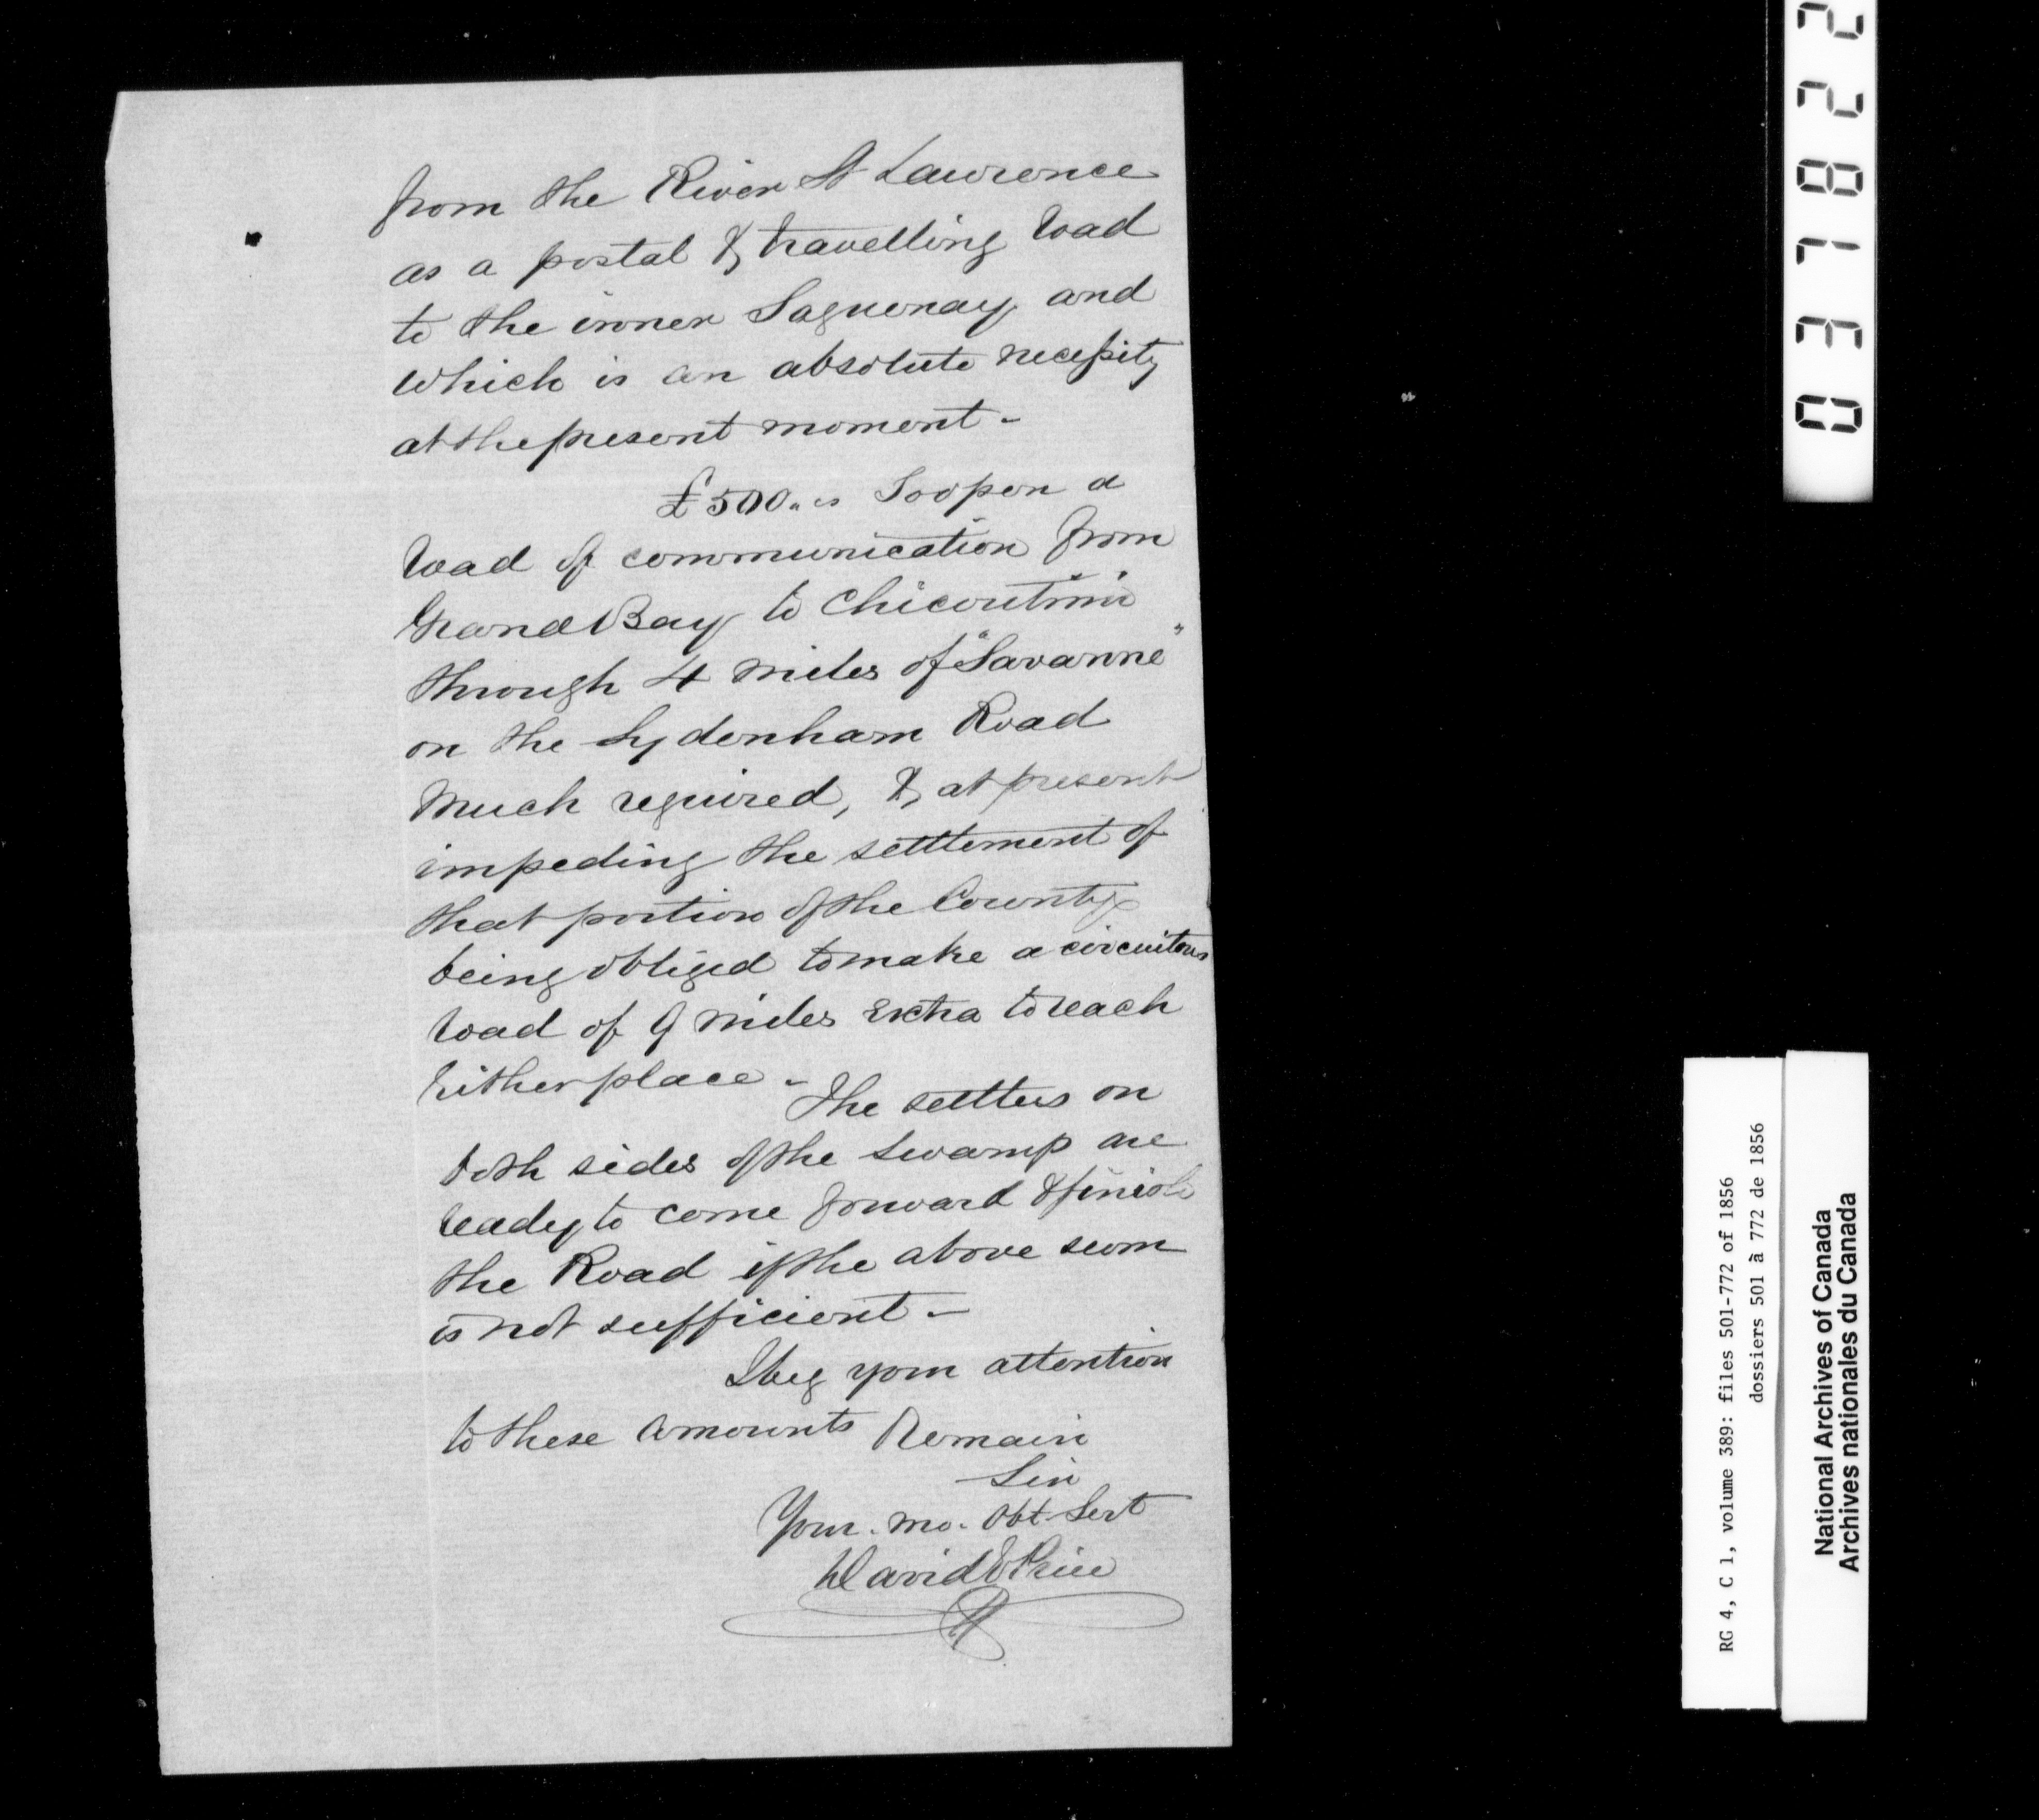 from the River St Lawrence
as a postal & travelling road
to the inner Saguenay and
which is an absolute necessity
at the present moment -
£500 " is To open a
road of communication from
Grand Bay to Chicoutimi
through 4 miles of "Savanne"
on the Sydenham Road
Much required, & at present
impeding the settlement of
that portion of the County
being obliged to make a circuitous
road of 9 miles extra to reach
either place -
The settlers on
both sides of the swamp are
ready to come forward & finish
the Road if the above sum
is not sufficient -
I beg your attention
to these amounts Remain
Sir
Your. mo. Obt Servt
David E Price
037822
RG 4, C 1, volume 389: files 501-772 of 1856
dossiers 501 à 772 de 1856
National Archives of Canada
Archives nationales du Canada